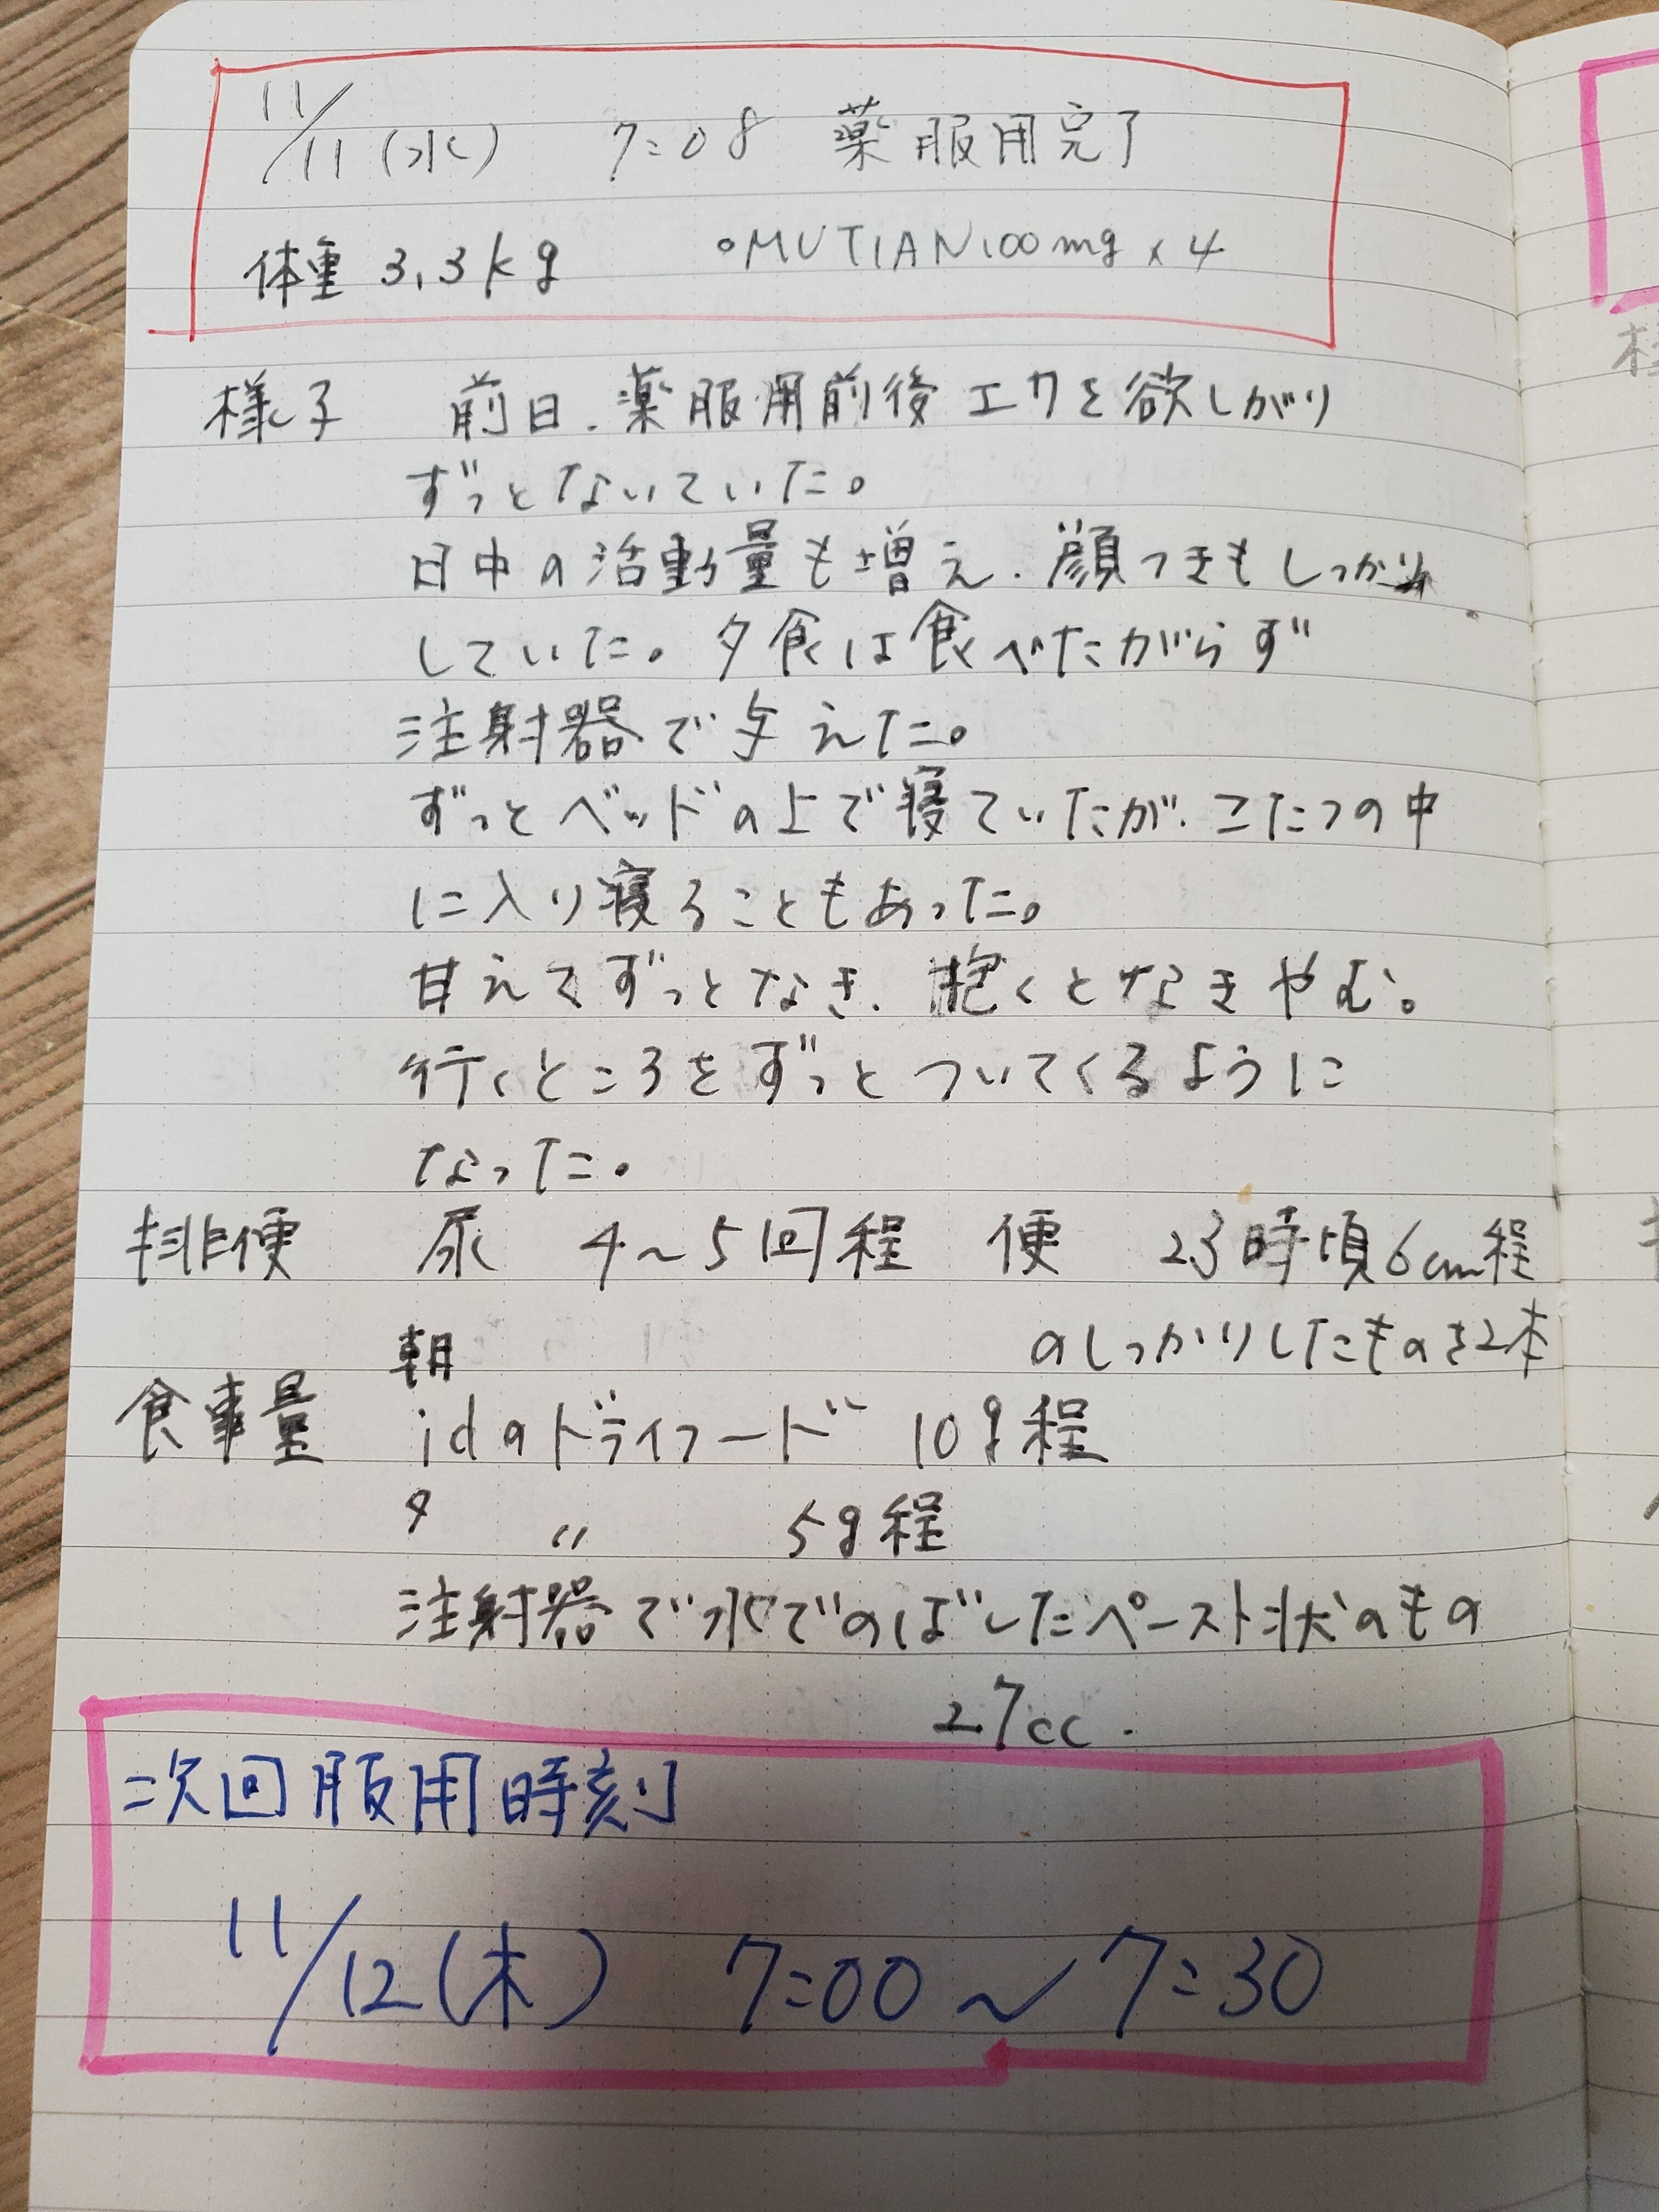 11/11(水) 7:08 薬服用完了
体重 3.3kg ∘MUTIAN100mg×4
様子 前日.薬服用前後エサを欲しがり
ずっとないていた。
日中の活動量も増え.顔つきもしっかり
していた。夕食は食べたがらず
注射器で与えた。
ずっとベッドの上で寝ていたが.こたつの中
に入り寝ることもあった。
甘えてずっとなき.抱くとなきやむ。
行くところをずっとついてくるように
なった。
排便 尿 4~5回程 便 23時頃6cm程
のしっかりしたものを2本
朝
食事量 idのドライフード 10g程
夕 〃 5g程
注射器で水でのばしたペースト状のもの
27cc.
次回服用時刻
11/12(木) 7:00~7:30